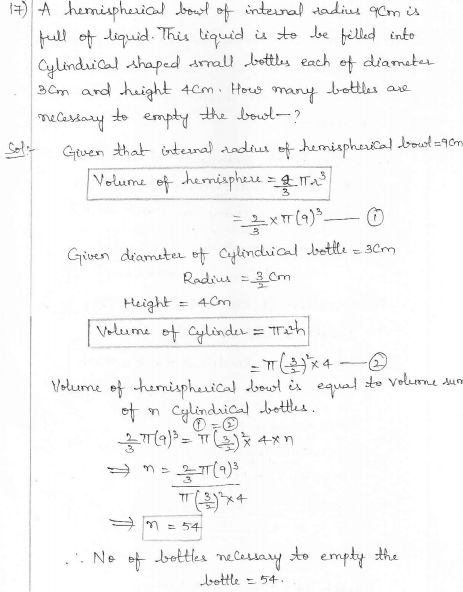 17) A hemispherical bowl of internal radius 9cm is
full of liquid. This liquid is to be filled into
Cylindrical shaped small bottles each of diameter
3cm and height 4cm. How many bottles are
necessary to empty the bowl-?
Sol:- Given that internal radius of hemispherical bowl=9cm
Volume of hemisphere = 2/3 πr³
= 2/3 × π(9)³ — ①
Given diameter of cylindrical bottle = 3cm
Radius = 3/2 cm
Height = 4cm
Volume of cylinder = πr²h
= π(3/2)² × 4 — ②
Volume of hemispherical bowl is equal to volume sum
of n cylindrical bottles.
① = ②
2/3 π(9)³ = π(3/2)² × 4 × n
⇒ n = 2/3 π(9)³ / π(3/2)² × 4
⇒ n = 54
∴ No of bottles necessary to empty the
bottle = 54.